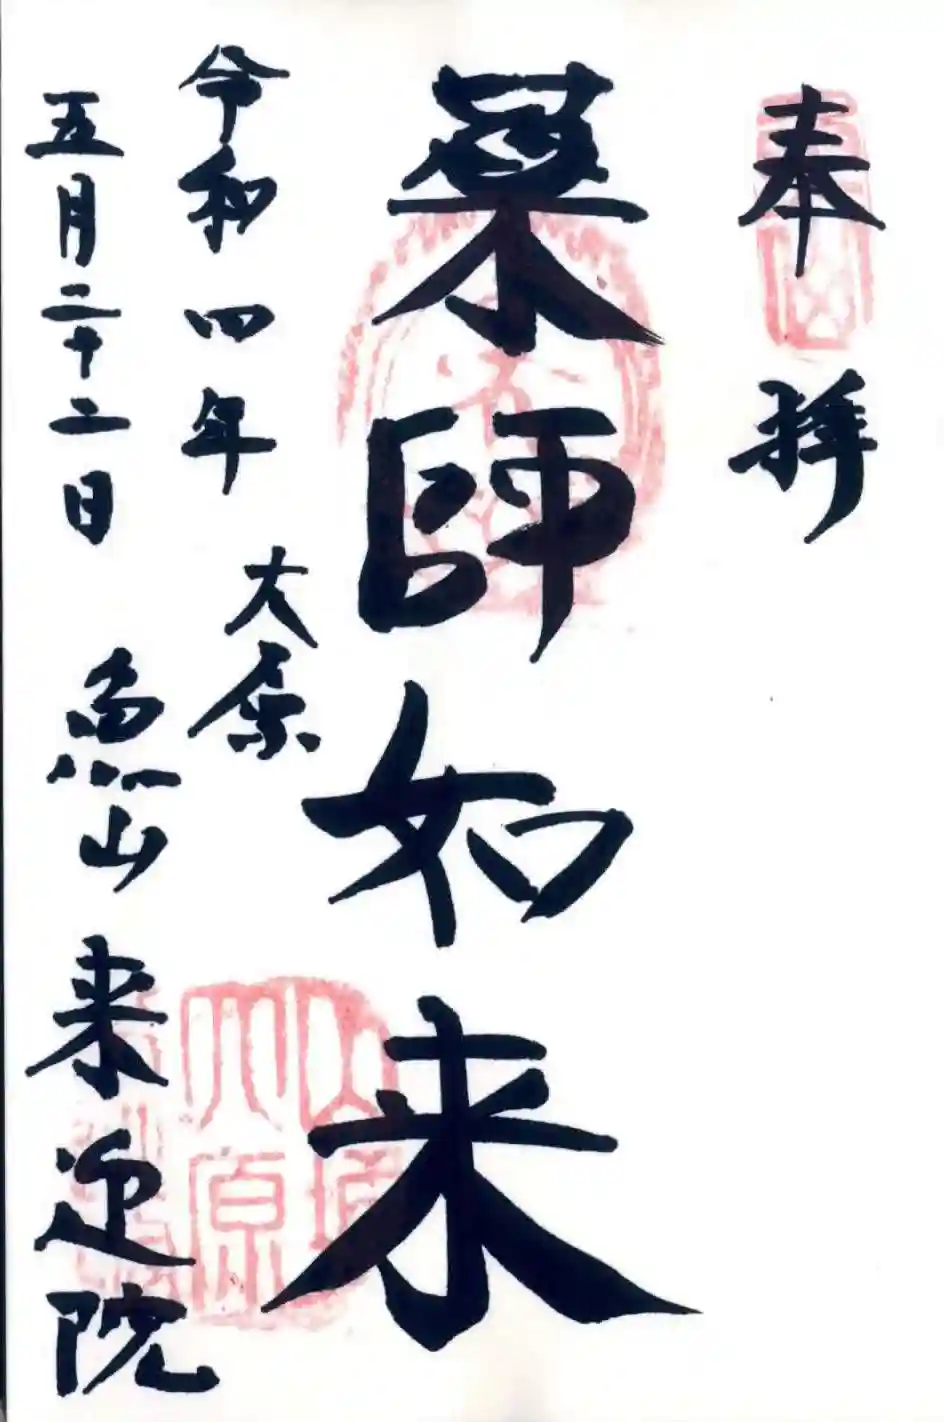 奉拝
薬師如来
大原
令和四年
五月二十二日
魚山来迎院